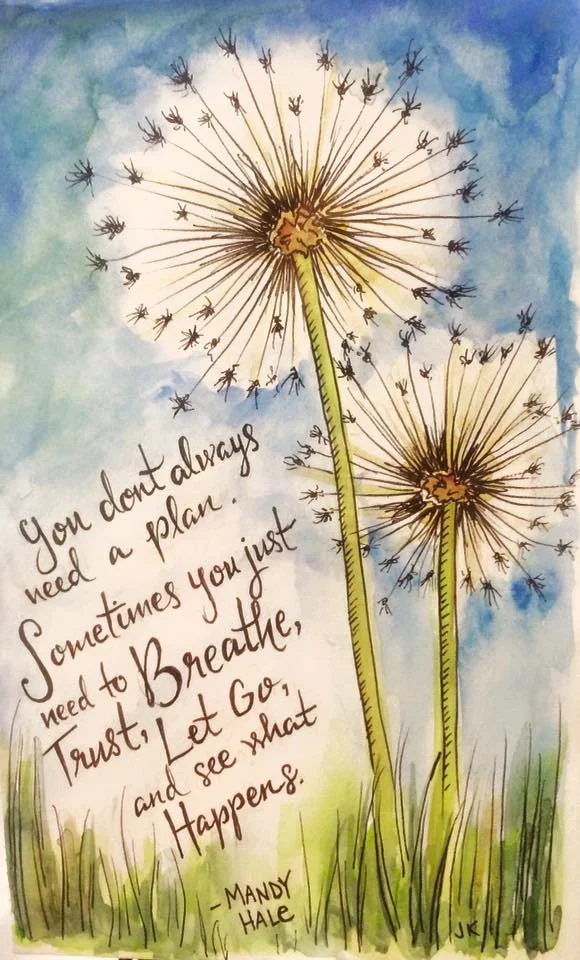 You dont always
need a plan.
Sometimes you just
need to Breathe,
Trust, Let Go,
and see what
Happens.
- MANDY
HALe
JK